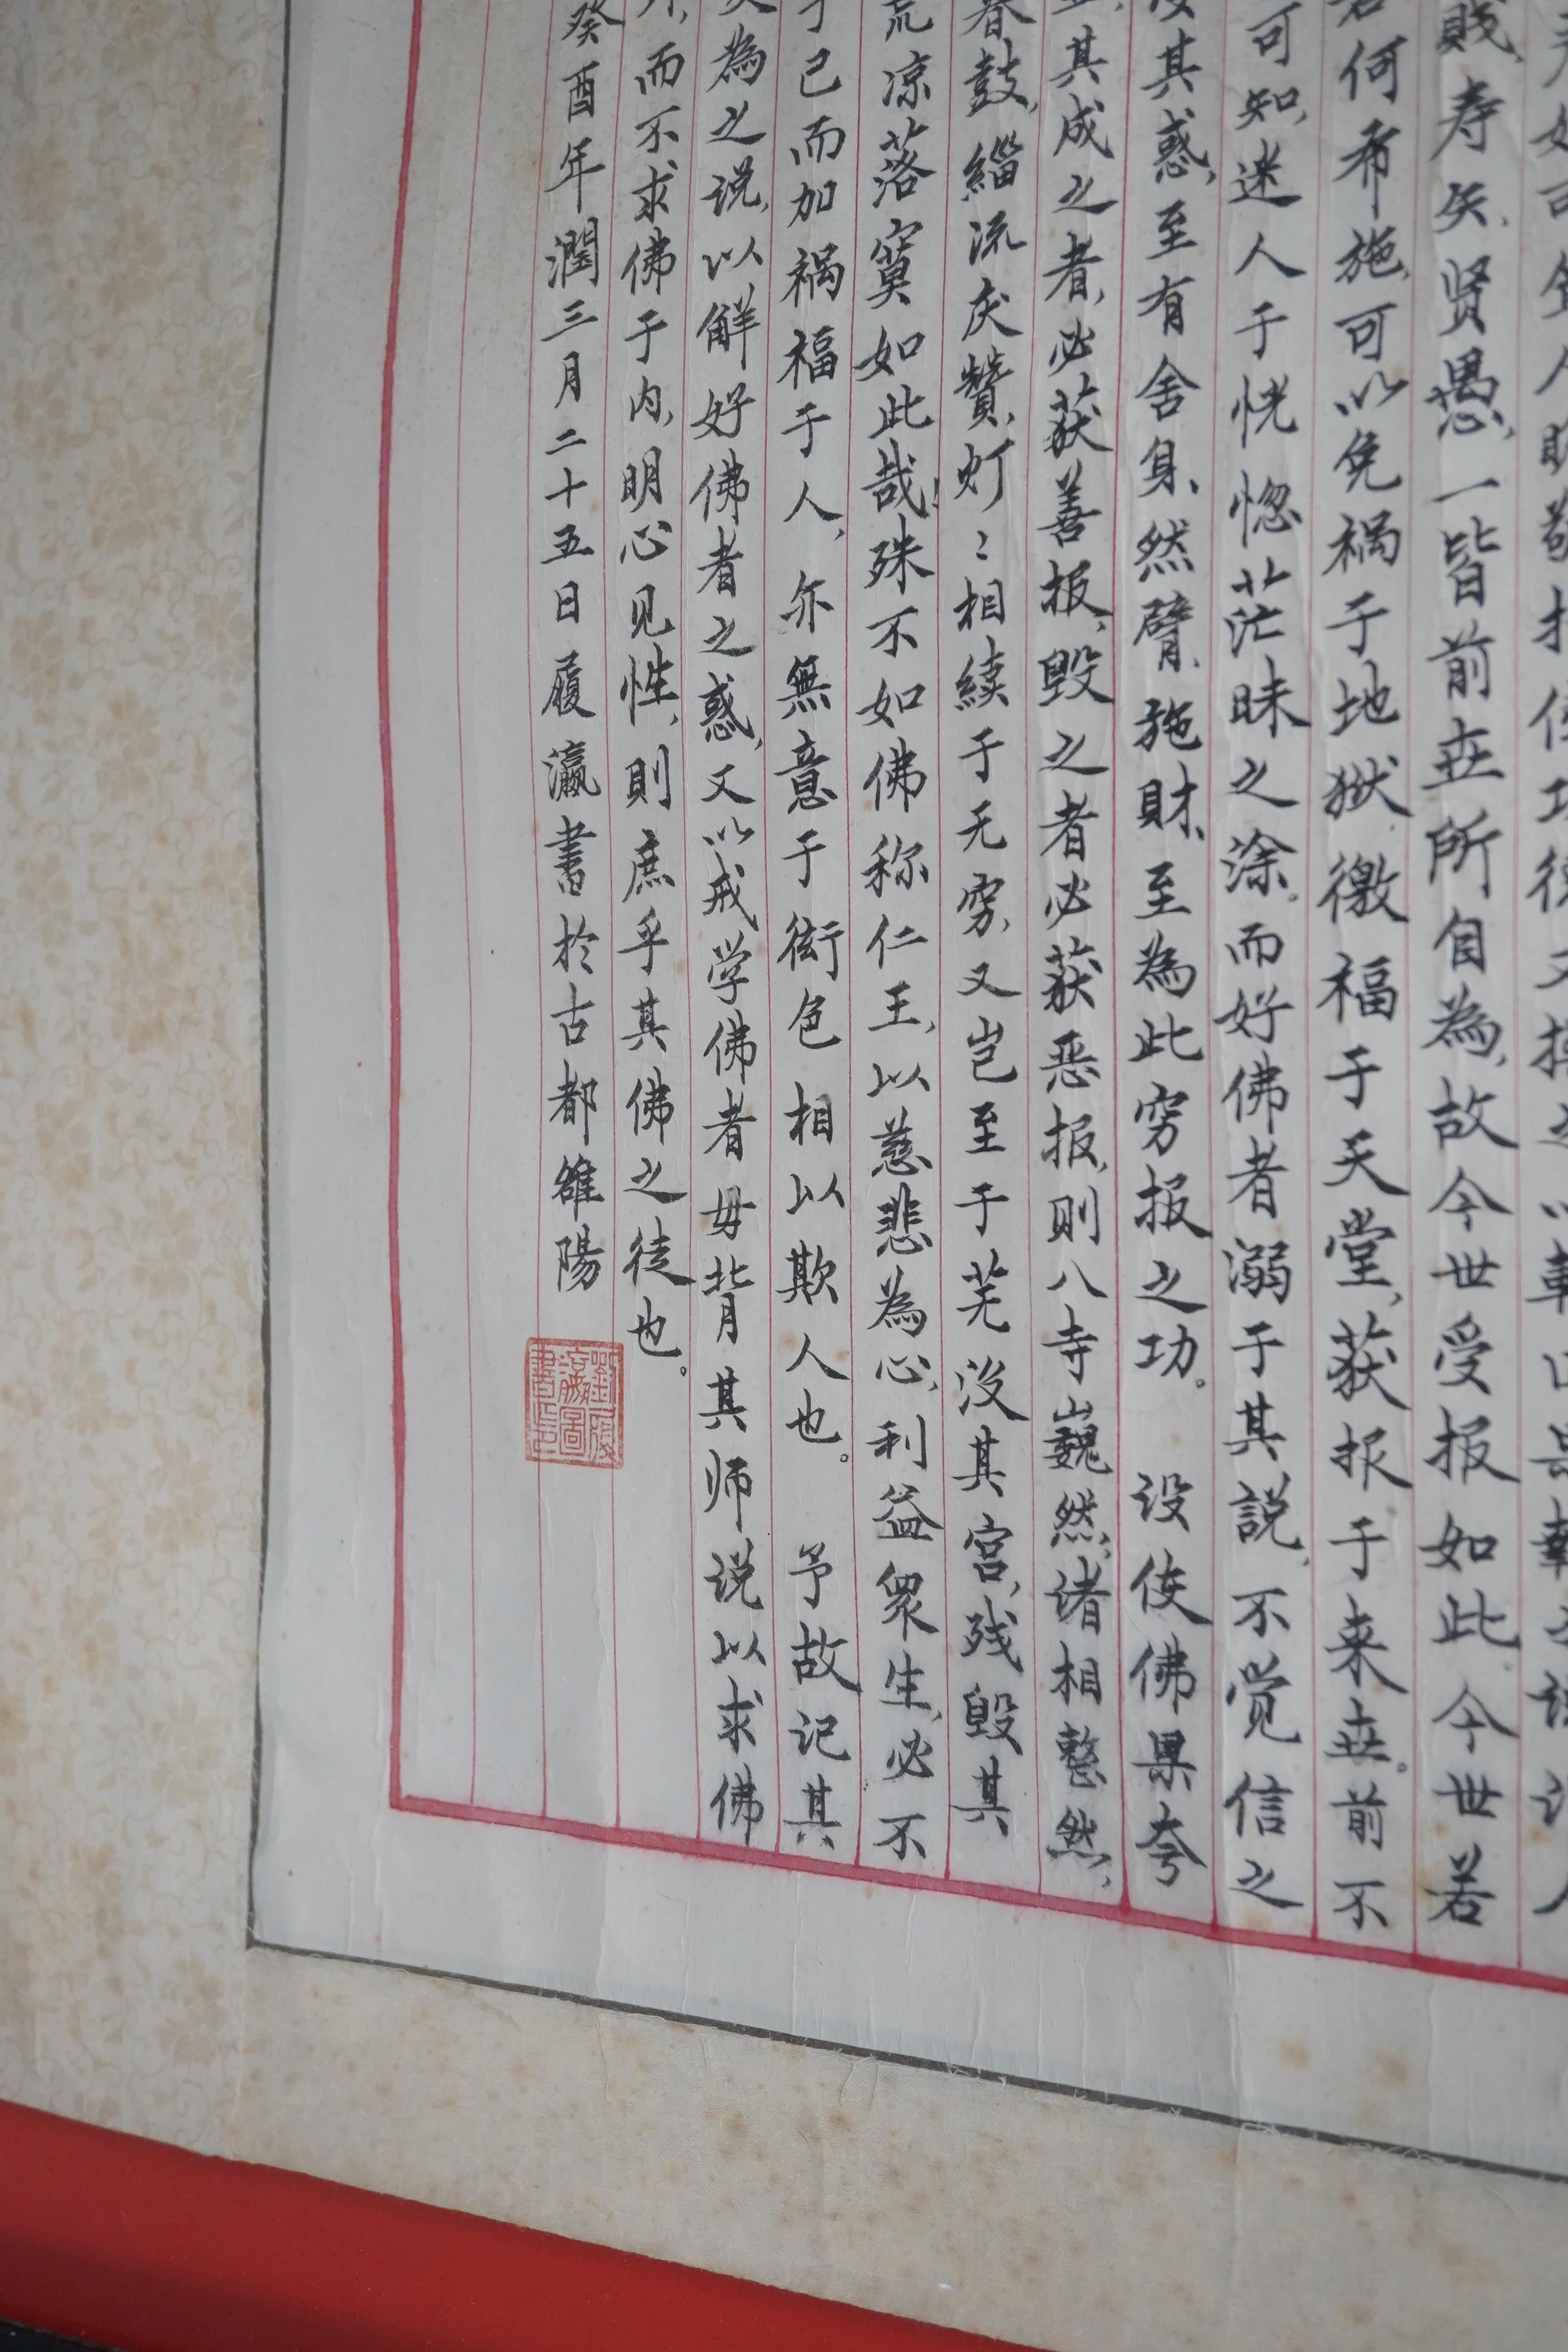 賤寿矣、贤愚、一皆前世所自為、故今世受报如此。今世若
何希施、可以免祸于地狱、徼福于天堂、获报于来世。前不
可知、迷人于恍惚茫昧之涂。而好佛者溺于其説、不觉信之
其惑、至有舍身、然臂、施財、至為此穷报之功。 设使佛果夸
其成之者、必获善报、毁之者必获恶报、则八寺巍然、诸相整然、
鼓、緇流庆赞、灯〻相续于无穷、又岂至于芜没其宫、残毁其
凉落寞如此哉！殊不如佛称仁王、以慈悲為心、利益眾生、必不
己而加祸福于人、亦無意于衒色相以欺人也。 予故记其
為之说、以解好佛者之惑、又以戒学佛者毋背其师说以求佛
而不求佛于内、明心见性、則庶乎其佛之徒也。
癸酉年潤三月二十五日履瀛書於古都雒陽
劉履瀛圖書印